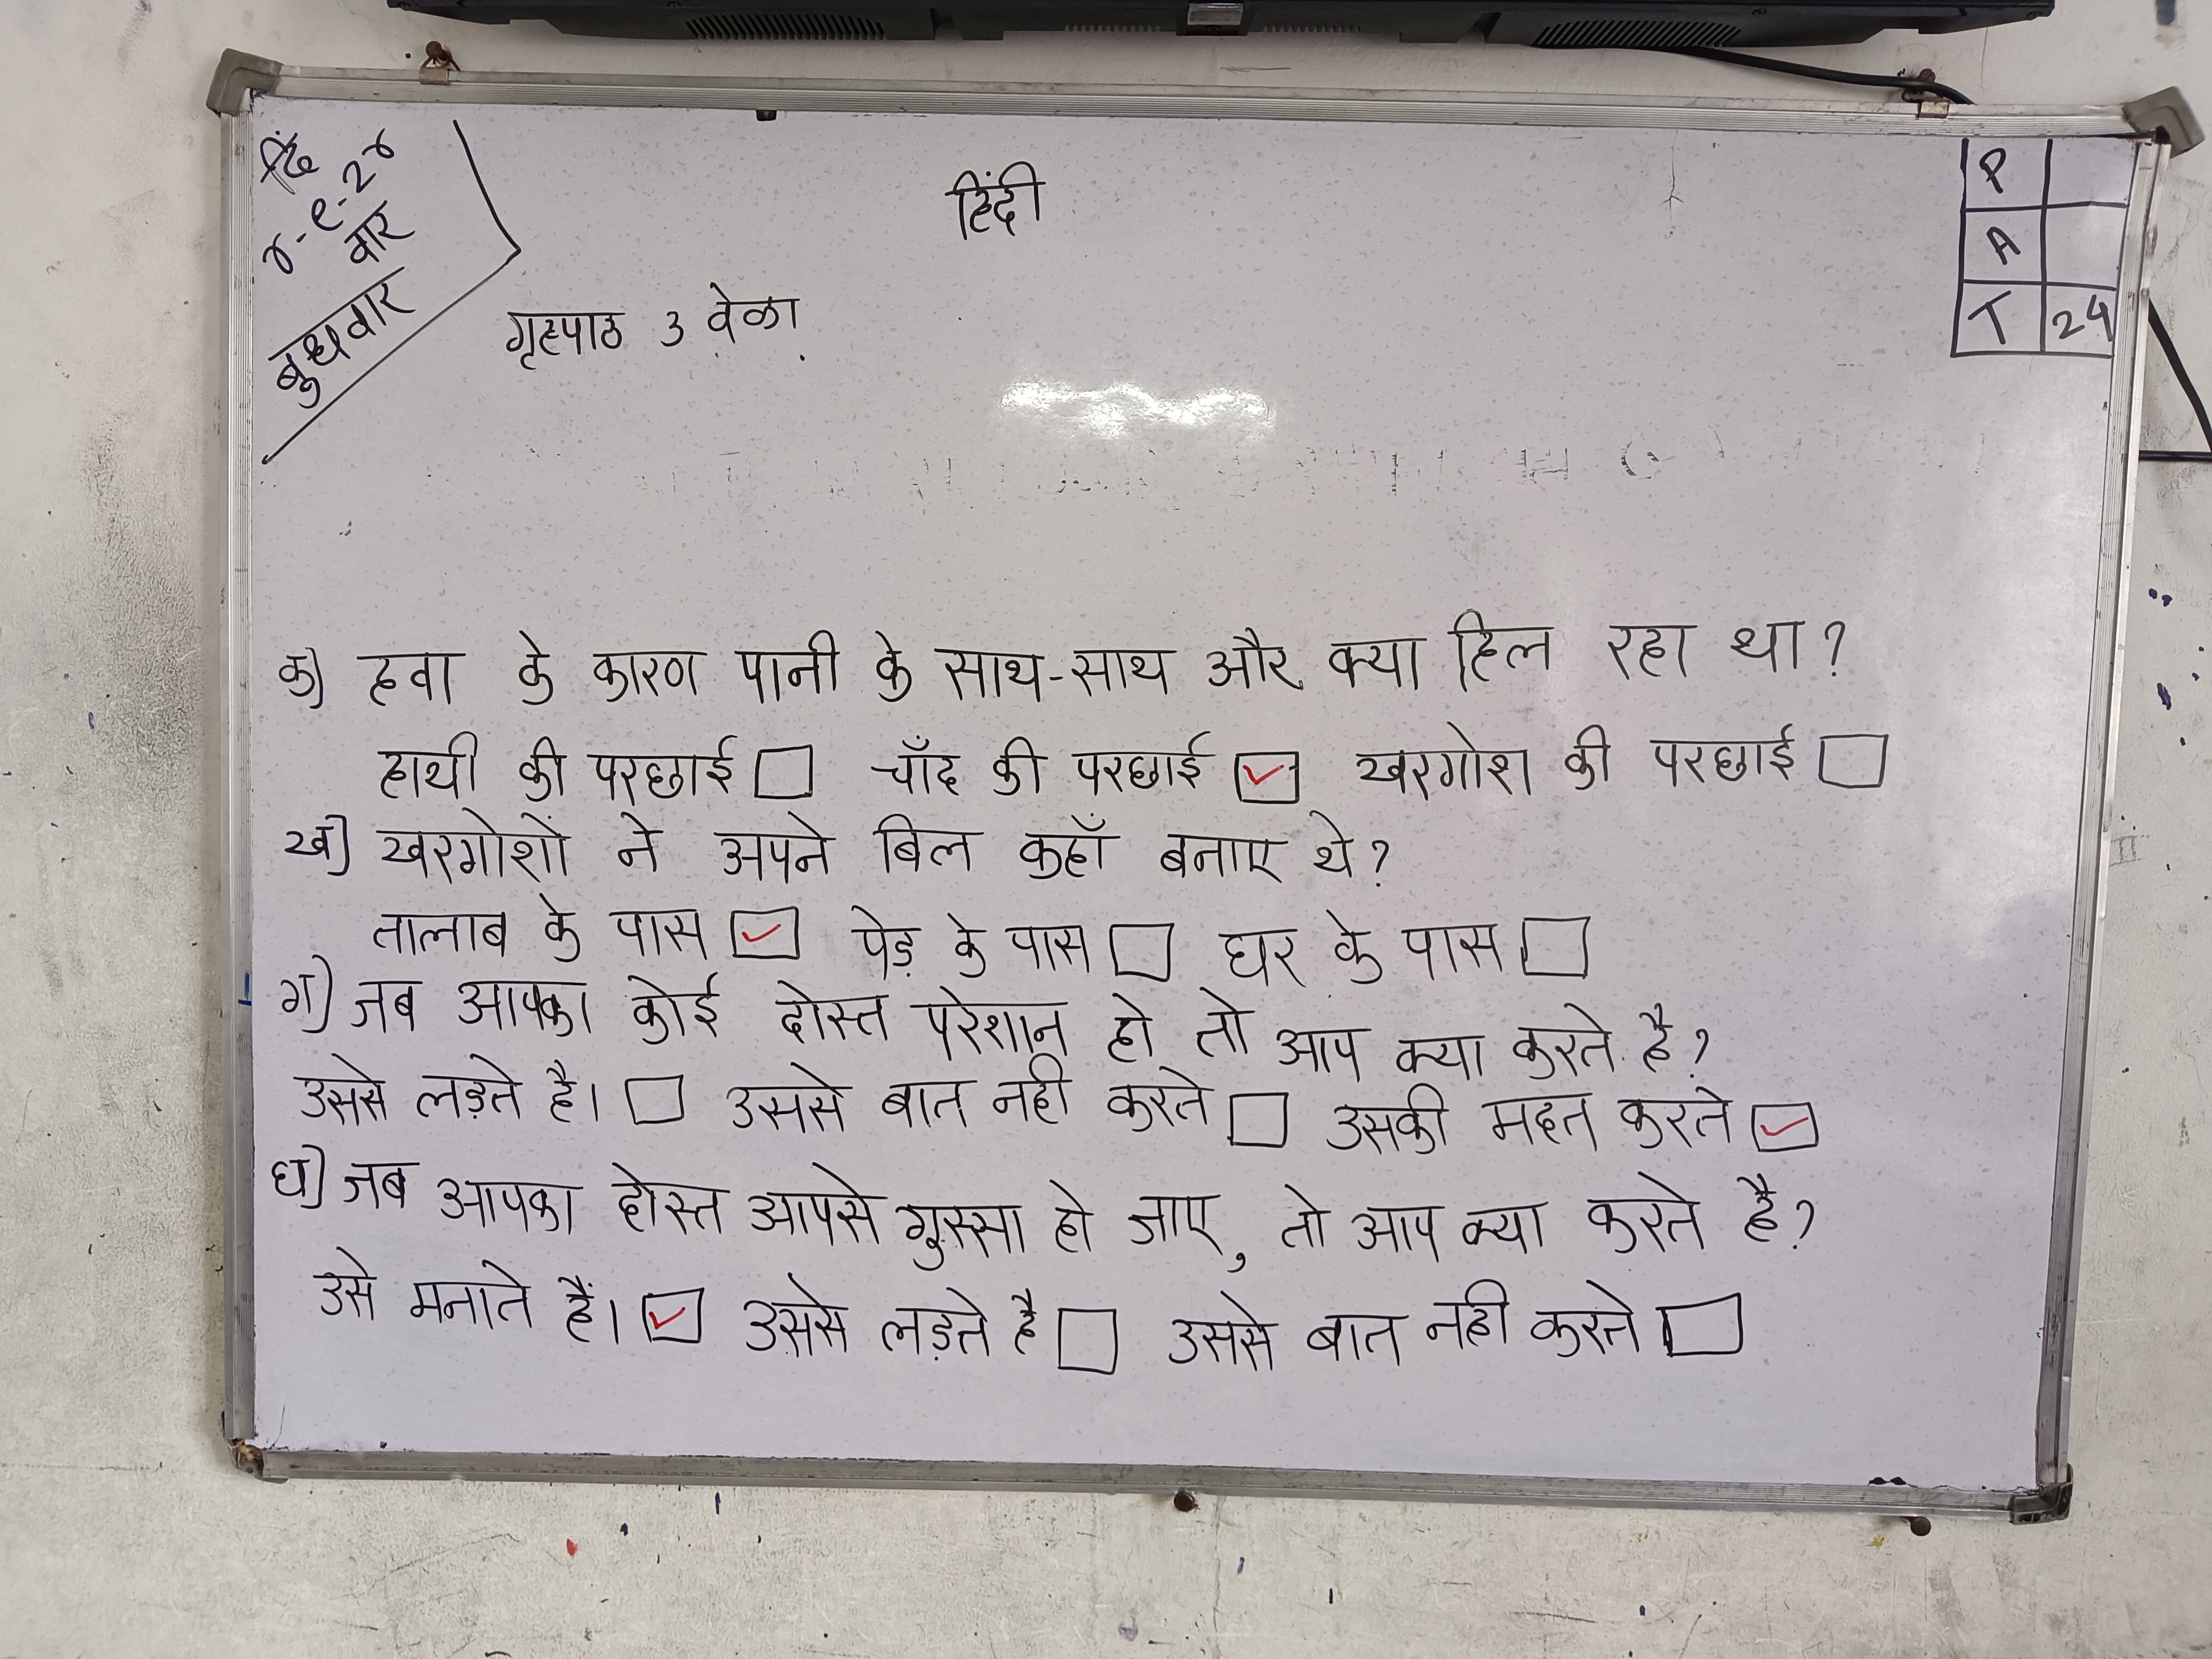 दिं
४-९-२४
वार
बुधवार
हिंदी
P
A
T 24
गृहपाठ ३ वेळा.
क) हवा के कारण पानी के साथ-साथ और क्या हिल रहा था?
हाथी की परछाई चाँद की परछाई ✓ खरगोश की परछाई
ख) खरगोशों ने अपने बिल कहाँ बनाए थे?
तालाब के पास ✓ पेड़ के पास घर के पास
ग) जब आपका कोई दोस्त परेशान हो तो आप क्या करते है?
उससे लड़ते है। उससे बात नही करते उसकी मदत करते ✓
घ) जब आपका दोस्त आपसे गुस्सा हो जाए, तो आप क्या करते है?
उसे मनाते हैं। ✓ उससे लड़ते है उससे बात नही करते